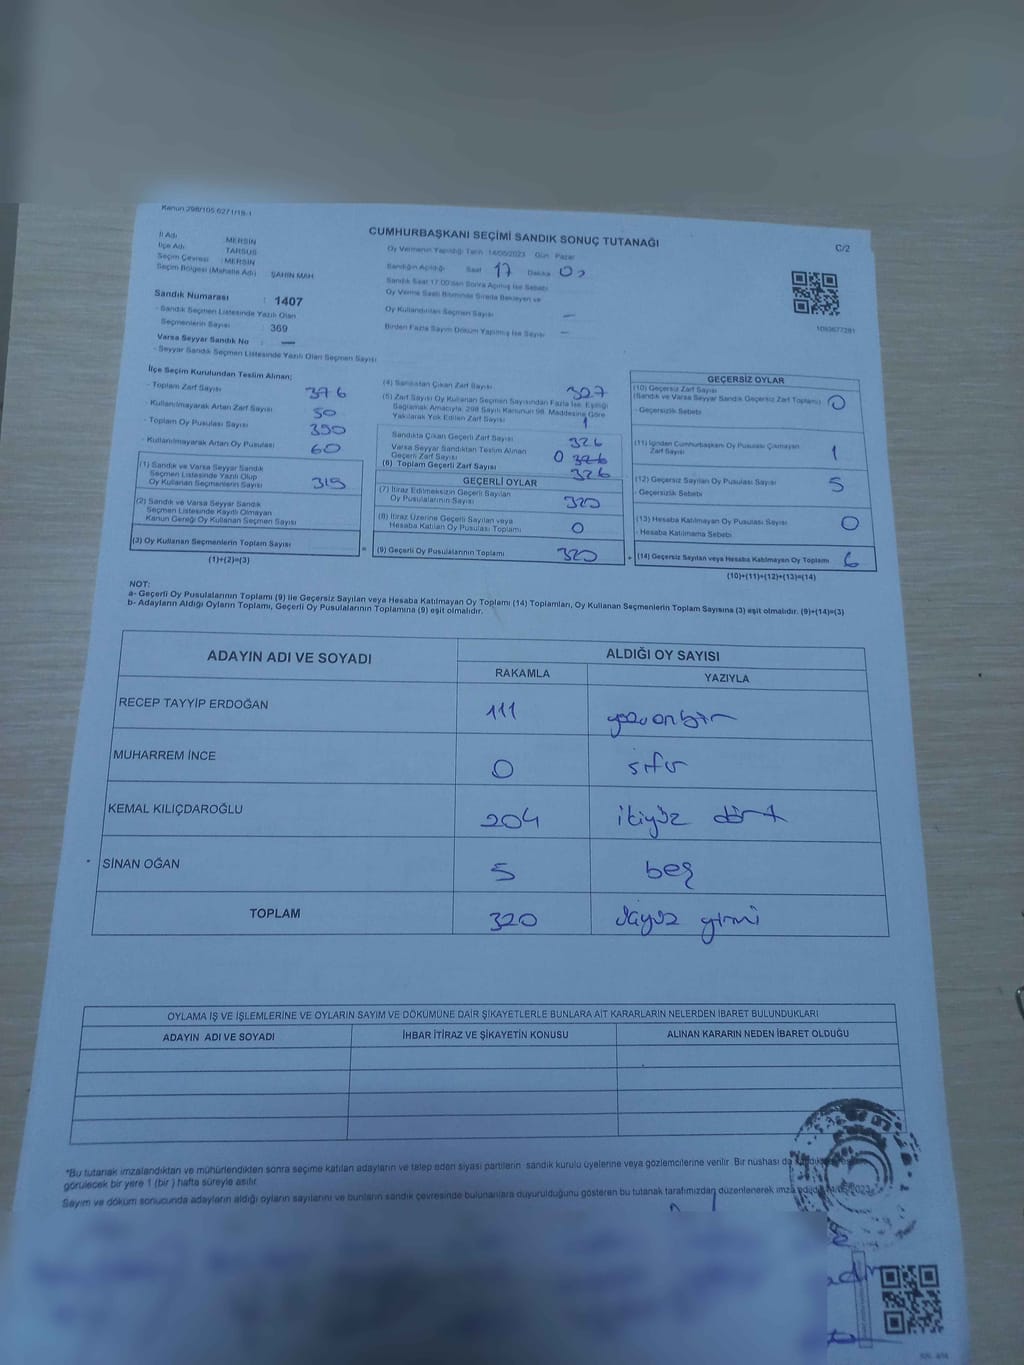 Kanun:298/105,6271/18-1
CUMHURBAŞKANI SEÇİMİ SANDIK SONUÇ TUTANAĞI
C/2
İl Adı : MERSİN
İlçe Adı : TARSUS
Seçim Çevresi : MERSİN
Seçim Bölgesi (Mahalle Adı) : ŞAHİN MAH
Sandık Numarası : 1407
- Sandık Seçmen Listesinde Yazılı Olan
Seçmenlerin Sayısı : 369
Varsa Seyyar Sandık No : —
- Seyyar Sandık Seçmen Listesinde Yazılı Olan Seçmen Sayısı
Oy Vermenin Yapıldığı Tarih :14/05/2023 Gün : Pazar
Sandığın Açıldığı Saat 17 Dakika
Sandık Saat 17:00'den Sonra Açılmış İse Sebebi
Oy Verme Saati Bitiminde Sırada Bekleyen ve
Oy Kullandırılan Seçmen Sayısı —
Birden Fazla Sayım Döküm Yapılmış İse Sayısı —
1093677291
İlçe Seçim Kurulundan Teslim Alınan;
- Toplam Zarf Sayısı 376
- Kullanılmayarak Artan Zarf Sayısı 50
- Toplam Oy Pusulası Sayısı 390
- Kullanılmayarak Artan Oy Pusulası 60
(1) Sandık ve Varsa Seyyar Sandık
Seçmen Listesinde Yazılı Olup
Oy Kullanan Seçmenlerin Sayısı 319
(2) Sandık ve Varsa Seyyar Sandık
Seçmen Listesinde Kayıtlı Olmayan
Kanun Gereği Oy Kullanan Seçmen Sayısı
(3) Oy Kullanan Seçmenlerin Toplam Sayısı
(1)+(2)=(3)
(4) Sandıktan Çıkan Zarf Sayısı 327
(5) Zarf Sayısı Oy Kullanan Seçmen Sayısından Fazla İse, Eşitliği
Sağlamak Amacıyla, 298 Sayılı Kanunun 98. Maddesine Göre
Yakılarak Yok Edilen Zarf Sayısı 1
Sandıkta Çıkan Geçerli Zarf Sayısı 326
Varsa Seyyar Sandıktan Teslim Alınan
Geçerli Zarf Sayısı 0 326
(6) Toplam Geçerli Zarf Sayısı 326
GEÇERLİ OYLAR
(7) İtiraz Edilmeksizin Geçerli Sayılan
Oy Pusulalarının Sayısı 320
(8) İtiraz Üzerine Geçerli Sayılan veya
Hesaba Katılan Oy Pusulası Toplamı 0
= (9) Geçerli Oy Pusulalarının Toplamı 320
GEÇERSİZ OYLAR
(10) Geçersiz Zarf Sayısı
(Sandık ve Varsa Seyyar Sandık Geçersiz Zarf Toplamı) 0
- Geçersizlik Sebebi
(11) İçinden Cumhurbaşkanı Oy Pusulası Çıkmayan
Zarf Sayısı 1
(12) Geçersiz Sayılan Oy Pusulası Sayısı 5
- Geçersizlik Sebebi
(13) Hesaba Katılmayan Oy Pusulası Sayısı 0
- Hesaba Katılmama Sebebi
+ (14) Geçersiz Sayılan veya Hesaba Katılmayan Oy Toplamı 6
(10)+(11)+(12)+(13)=(14)
NOT:
a- Geçerli Oy Pusulalarının Toplamı (9) ile Geçersiz Sayılan veya Hesaba Katılmayan Oy Toplamı (14) Toplamları, Oy Kullanan Seçmenlerin Toplam Sayısına (3) eşit olmalıdır. (9)+(14)=(3)
b- Adayların Aldığı Oyların Toplamı, Geçerli Oy Pusulalarının Toplamına (9) eşit olmalıdır.
ADAYIN ADI VE SOYADI
ALDIĞI OY SAYISI
RAKAMLA YAZIYLA
RECEP TAYYİP ERDOĞAN 111 yüzonbir
MUHARREM İNCE 0 sıfır
KEMAL KILIÇDAROĞLU 204 ikiyüz dört
SİNAN OĞAN 5 beş
TOPLAM 320 üçyüz yirmi
OYLAMA İŞ VE İŞLEMLERİNE VE OYLARIN SAYIM VE DÖKÜMÜNE DAİR ŞİKAYETLERLE BUNLARA AİT KARARLARIN NELERDEN İBARET BULUNDUKLARI
ADAYIN ADI VE SOYADI İHBAR İTİRAZ VE ŞİKAYETİN KONUSU ALINAN KARARIN NEDEN İBARET OLDUĞU
*Bu tutanak imzalandıktan ve mühürlendikten sonra seçime katılan adayların ve talep eden siyasi partilerin sandık kurulu üyelerine veya gözlemcilerine verilir. Bir nüshası da
görülecek bir yere 1 (bir ) hafta süreyle asılır.
Sayım ve döküm sonucunda adayların aldığı oyların sayılarını ve bunların sandık çevresinde bulunanlara duyurulduğunu gösteren bu tutanak tarafımızdan düzenlenerek imza